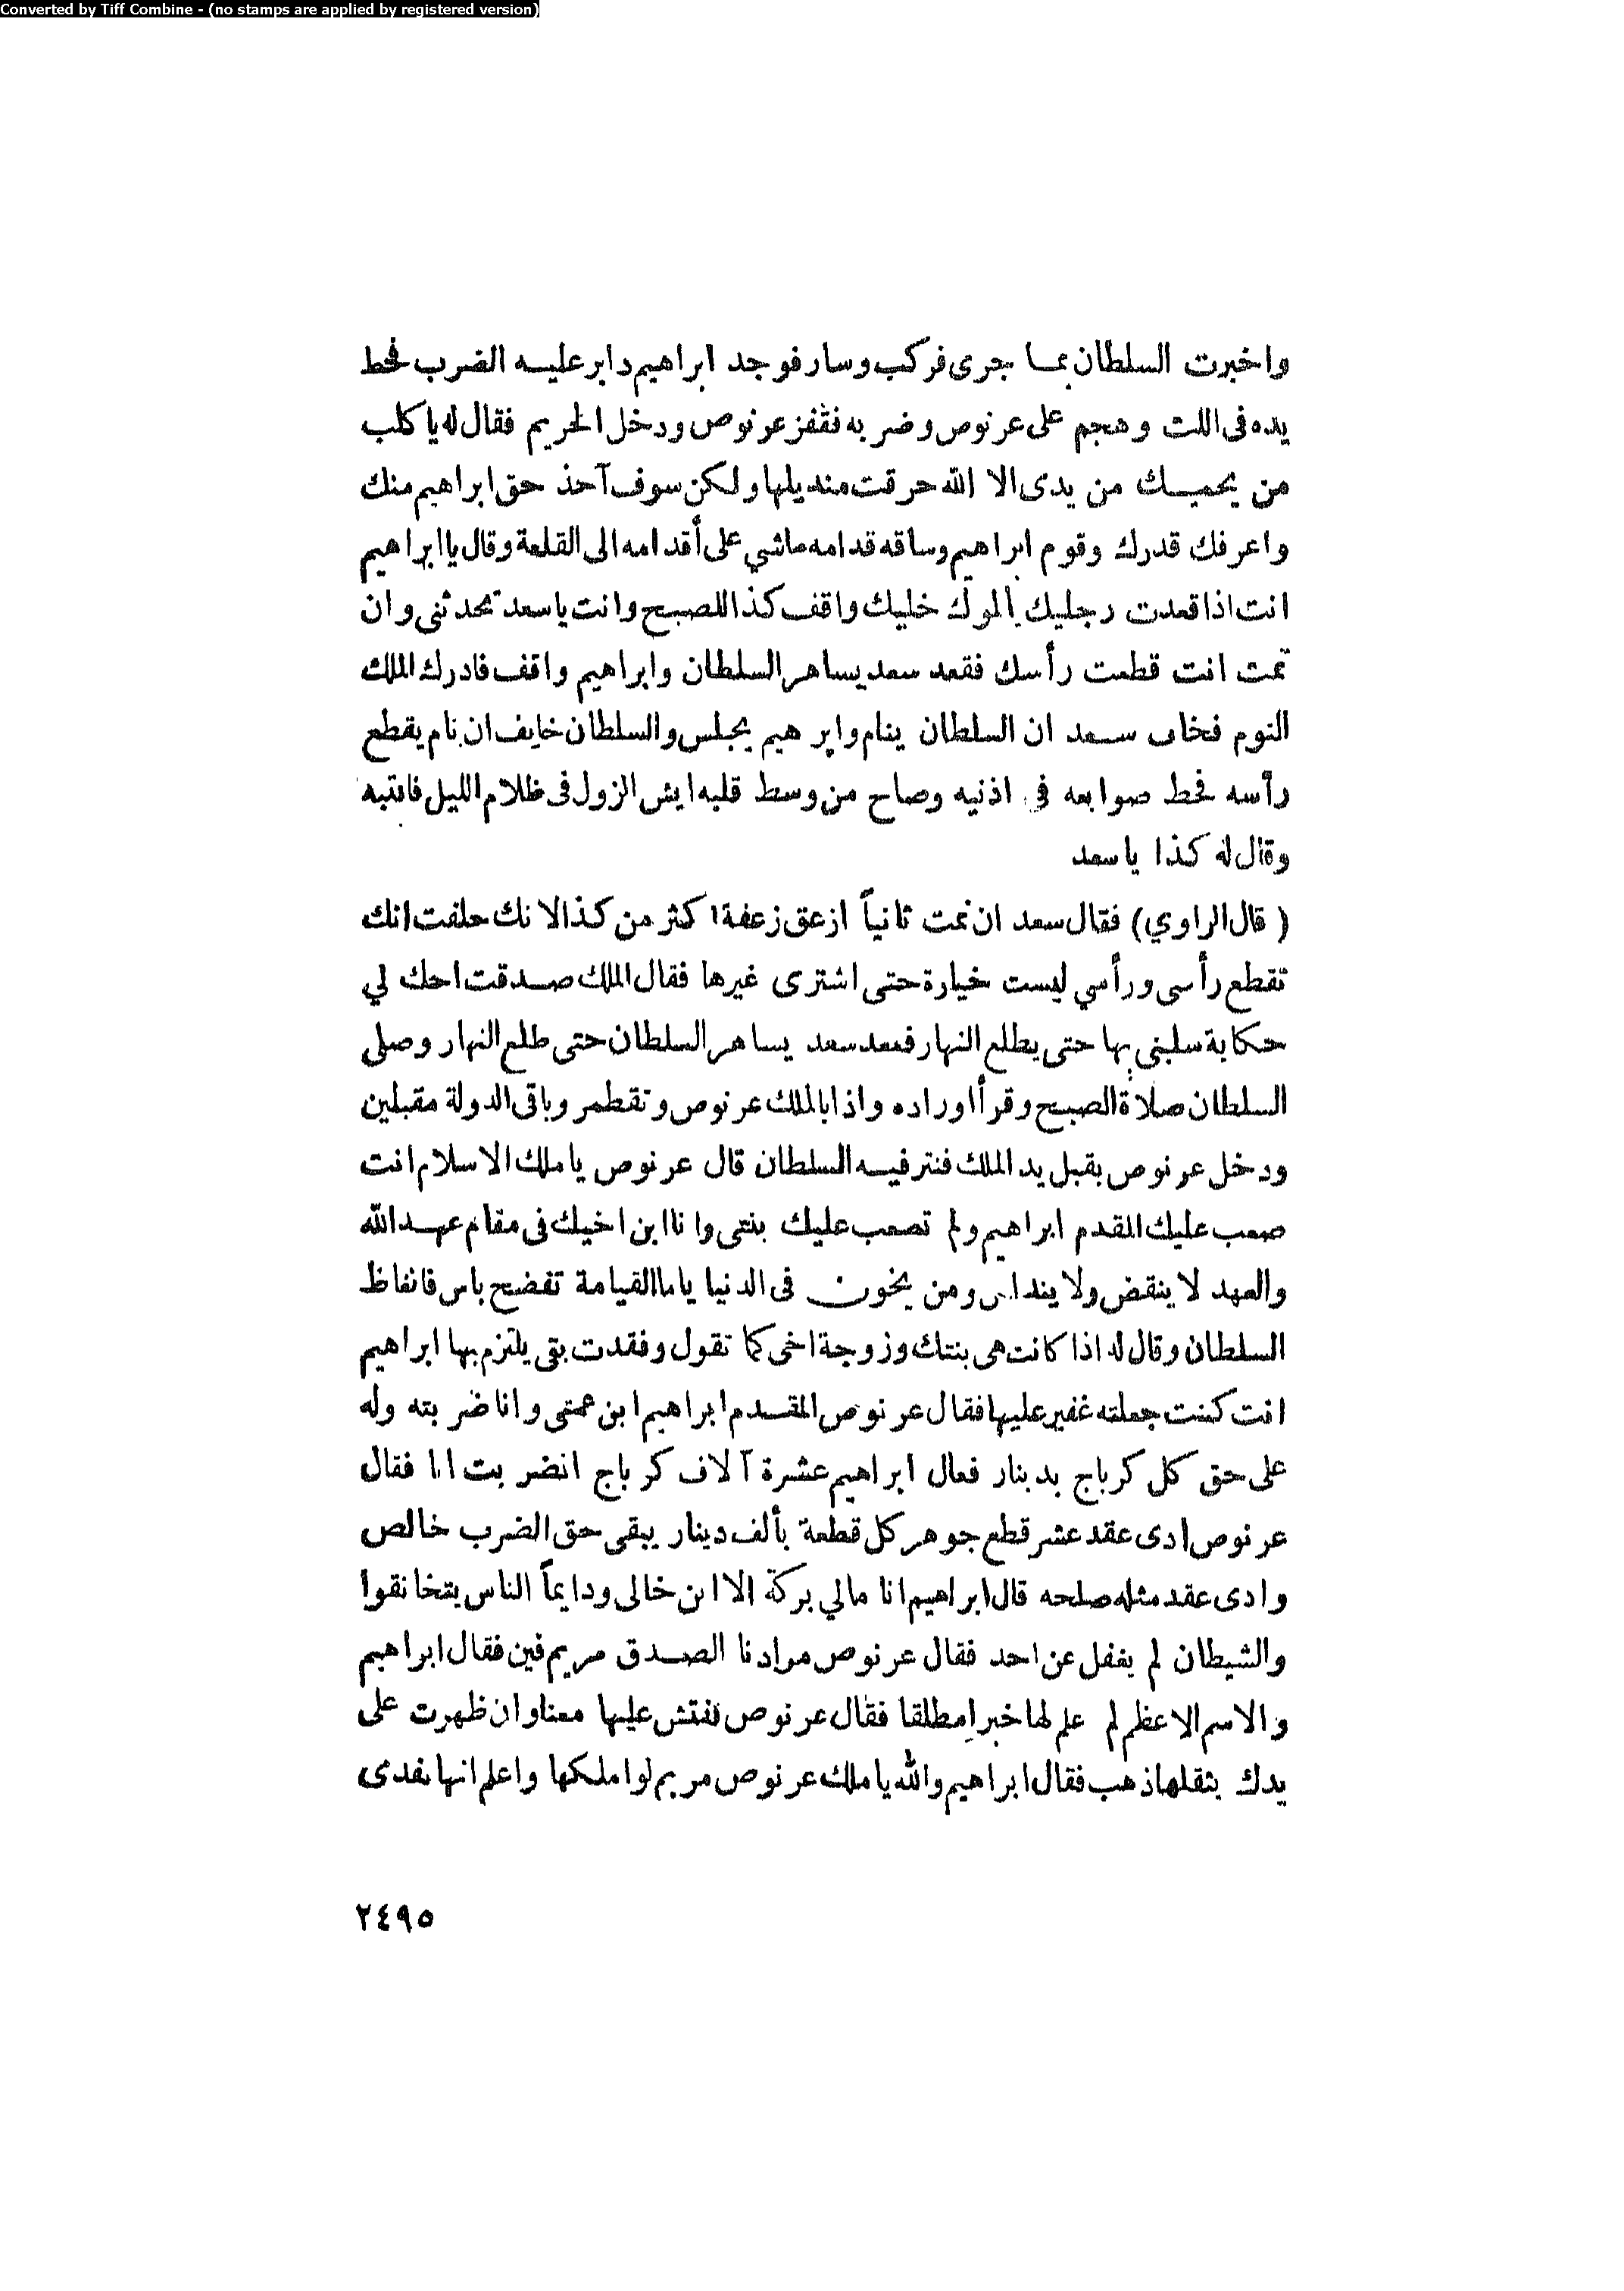 Converted by Tiff Combine - (no stamps are applied by registered version)
واخبرت السلطان بما جرى فركب وسار فوجد ابراهيم داير عليه الضرب فحط
يده فى اللت وهجم على عرنوص وضربه فقفز عرنوص ودخل الحريم فقال له يا كلب
من يحميك من يدى الا الله حرقت منديلها ولكن سوف آخذ حق ابراهيم منك
واعرفك قدرك وقوم ابراهيم وساقه قدامه ماشي على أقدامه الى القلعة وقال يا ابراهيم
انت اذا قعدت رجليك ألموك خليك واقف كذا للصبح وانت يا سعد تحدثنى وان
نمت انت قطعت رأسك فقعد سعد يساهر السلطان وابراهيم واقف فادرك الملك
النوم فخاف سعد ان السلطان ينام وابرهيم يجلس والسلطان خايف ان نام يقطع
رأسه فحط صوابعه فى اذنيه وصاح من وسط قلبه ايش الزول فى ظلام الليل فانتبه
وقال له كذا يا سعد
( قال الراوي) فقال سعد ان نمت ثانياً ازعق زعقة اكثر من كذا لانك حلفت انك
تقطع رأسى ورأسي ليست خيارة حتى اشترى غيرها فقال الملك صدقت احك لي
حكاية سلينى بها حتى يطلع النهار فقعد سعد يساهر السلطان حتى طلع النهار وصلى
السلطان صلاة الصبح وقرأ اوراده واذا بالملك عرنوص وتقطمر وباقى الدولة مقبلين
ودخل عرنوص يقبل يد الملك فنتر فيه السلطان قال عرنوص يا ملك الاسلام انت
صعب عليك المقدم ابراهيم ولم تصعب عليك بنتى وانا ابن اخيك فى مقام عهد الله
والعهد لا ينقض ولا ينداس ومن يخون فى الدنيا ياما القيامة تفضح باس فانغاظ
السلطان وقال له اذا كانت هى بنتك وزوجة اخى كما تقول وفقدت بقى يلتزم بها ابراهيم
انت كنت جعلته غفير عليها فقال عرنوص المقدم ابراهيم ابن عمتى وانا ضربته وله
على حق كل كرباج بدينار فقال ابراهيم عشرة آلاف كرباج انضربت انا فقال
عرنوص ادى عقد عشر قطع جوهر كل قطعة بألف دينار يبقى حق الضرب خالص
وادى عقد مثله صلحه قال ابراهيم انا مالي بركة الا ابن خالى ودايماً الناس بتخانقوا
والشيطان لم يغفل عن احد فقال عرنوص مرادنا الصدق مريم فين فقال ابراهيم
والاسم الاعظم لم علم لها خبراً مطلقا فقال عرنوص تفتش عليها معنا وان ظهرت على
يدك بثقلها ذهب فقال ابراهيم والله يا ملك عرنوص مريم لو املكها واعلم انها تفدى
٢٤٩٥